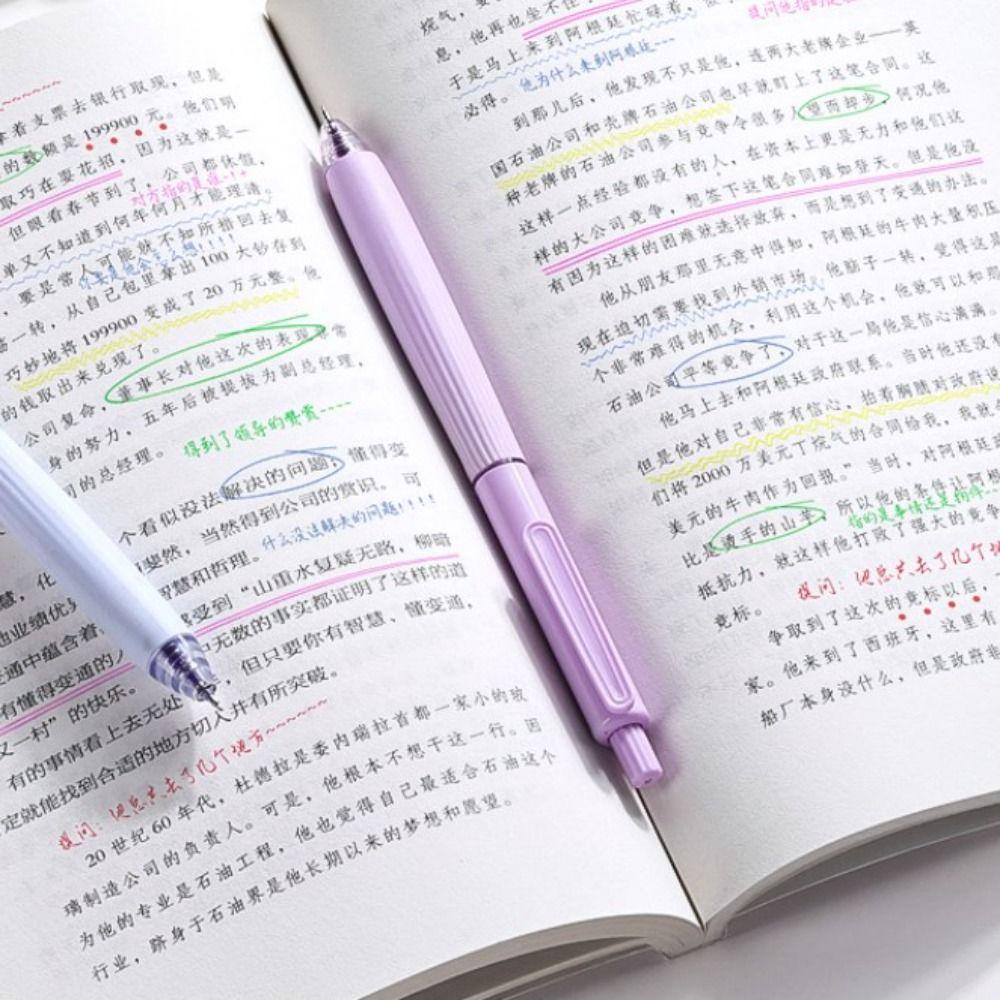 拿着支票去银行取现，但是
的数额是 199900 元。他们明
取巧在耍花招，因为这就是一
但眼看春节到了，公司都休假，
对方指的是谁!!
单又不知道到何年何月才能理清。
要是常人可能就不知所措回去复
一转，从自己包里拿出 100 大钞存到
巧妙地将 199900 变成了 20 万元整。他
的钱取出来兑现了。
公司复命，董事长对他这次的表现非常
身的努力，五年后被提拔为副总经理，
司的总经理。
得到了领导的赞赏----
个看似没法解决的问题，懂得变
斐然，当然得到公司的赏识。可
智慧和哲理。
什么没法解决的问题!!!!
受到“山重水复疑无路，柳暗
无数的事实都证明了这样的道
但只要你有智慧、懂变通，
变通中蕴含着
有懂得变通的人
又一村”的快乐。
有的事情看上去无处
定就能找到合适的地方切入并有所突破。
提问：他总共去了几个地方~~~~
20 世纪 60 年代，杜德拉是委内瑞拉首都一家小的玻
璃制造公司的负责人。可是，他根本不想干这一行。因
为他的专业是石油工程，他也觉得自己最适合石油这个
行业，跻身于石油界是他长期以来的梦想和愿望。
烷气，要
提问他指的是
息，他再也坐不住了
于是马上来到阿根廷忙碌着，
他为什么来到阿根廷---
必得。
到那儿后，他发现不只是他，连两大老牌企业——英
国石油公司和壳牌石油公司也早就盯上了这笔合同。这
种老牌的石油公司参与竞争令很多人望而却步，何况他
这样一点经验都没有的人，在资本上更是无力和他们这
样的大公司竞争，想签下这笔合同难如登天。但是他没
有因为这样的困难就选择放弃，而是想到了变通的办法。
他从朋友那里无意中得知，阿根廷的牛肉大量积压
现在迫切需要找到外销市场，他脑子一转，觉得这是
个非常难得的机会，利用这个机会，他就可以和那
石油公司平等竞争了，对于这一局他是信心满满。
他马上去和阿根廷政府联系。当时他还没有
但是他对自己非常有信心，拍着胸脯对政府说
们将 2000 万美元丁烷气的合同给我，我就
美元的牛肉作为回报。”当时，对阿根廷
比是烫手的山芋，所以他的条件让阿根
指的是事情还是物件--
抵抗力，就这样他打败了强大的竞争
竞标。
提问：他总共去了几个地
争取到了这次的竞标以后，
家。他来到了西班牙，这里有
船厂本身没什么，但是政府